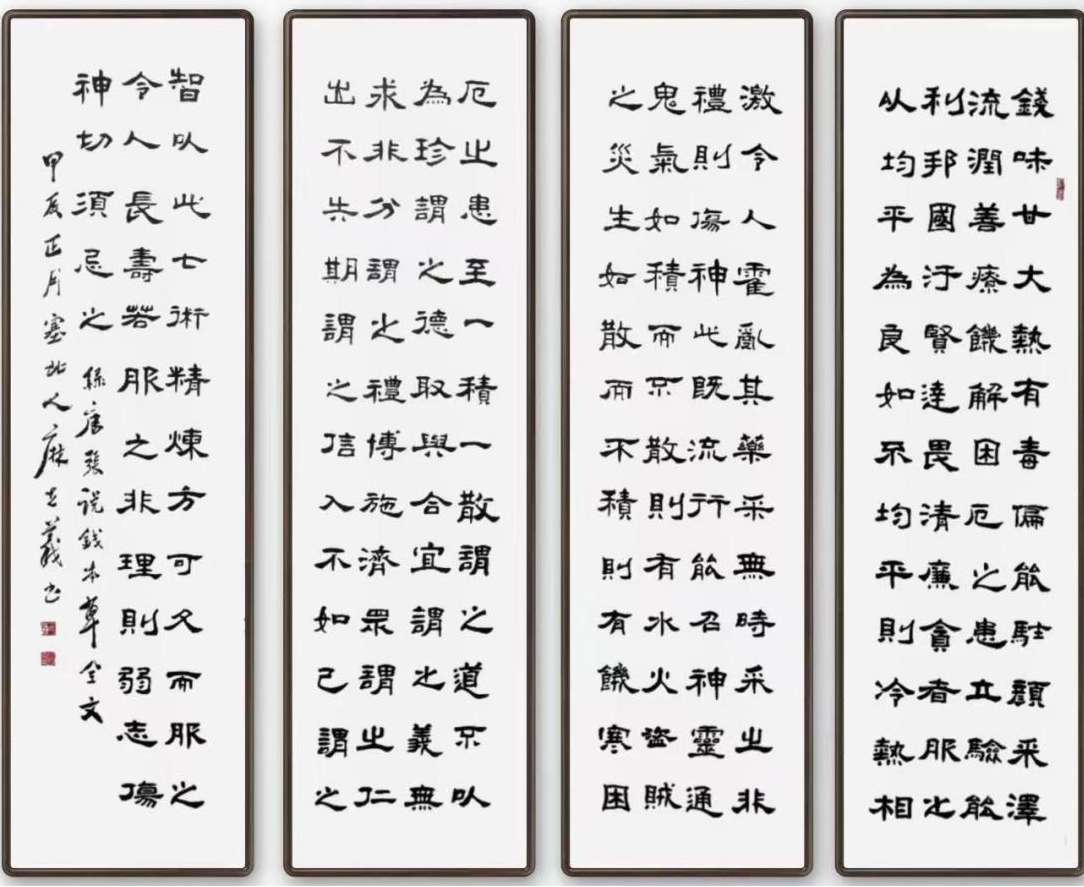 錢味甘大熱有毒偏能駐顏采澤
流潤善療饑解困厄之患立驗能
利邦國汙賢達畏清廉貪者服之
从均平為良如不均平則冷熱相
激令人霍亂其藥采無時采之非
禮則傷神此既流行能召神靈通
鬼氣如積而不散則有水火盜賊
之災生如散而不積則有饑寒困
厄之患至一積一散謂之道不以
為珍謂之德取與合宜謂之義無
求非分謂之禮博施濟眾謂之仁
出不失期謂之信入不如己謂之
智以此七術精煉方可久而服之
令人長壽若服之非理則弱志傷
神切須忌之 録唐張说錢本草全文
甲辰正月塞北人麻義书